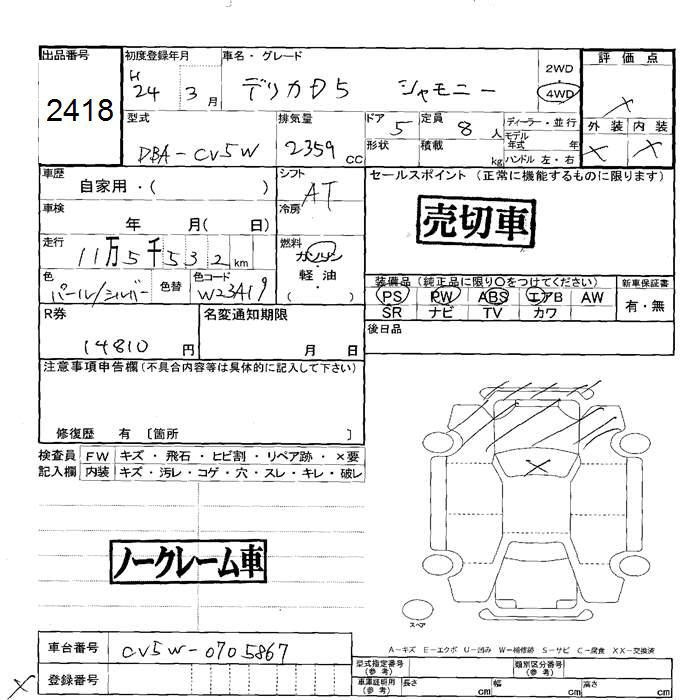 出品番号 初度登録年月 車名・グレード 評価点
2418 H 24 3月 デリカD5 シャモニー 2WD 4WD
×
型式 排気量 ドア 定員 ディーラー・並行 外装 内装
DBA-CV5W 2359 CC 5 8人 モデル年式 年 × ×
形状 積載 kg ハンドル 左・右
車歴 シフト セールスポイント(正常に機能するものに限ります)
自家用・( ) AT
車検 冷房 売切車
年 月( 日)
走行 燃料
11万5千532km ガソリン
軽油
( )
色 色替 色コード 装備品(純正品に限り○をつけてください) 新車保証書
パール/シルバー W23A19 PS PW ABS エアB AW 有・無
SR ナビ TV カワ
R券 名変通知期限 後日品
14810円 月 日
注意事項申告欄(不具合内容等は具体的に記入して下さい)
修復歴 有 〔箇所 〕
検査員 FW キズ・飛石・ヒビ割・リペア跡・×要
記入欄 内装 キズ・汚レ・コゲ・穴・スレ・キレ・破レ
×
ノークレーム車
スペア
A-キズ E-エクボ U-凹み W-補修跡 S-サビ C-腐食 XX-交換済
車台番号 CV5W-0705867
型式指定番号(参考) 類別区分番号(参考)
× 登録番号
車庫証明用(参考) 長さ cm 幅 cm 高さ cm